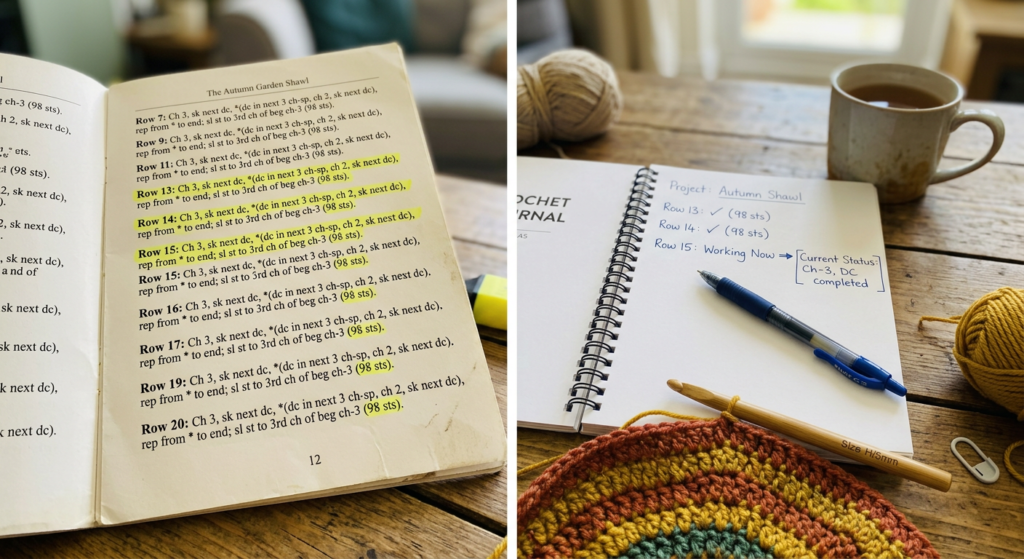 ch-3 (98 sts).
2, sk next dc),
ets.
(98 sts).
2, sk next dc),
2, sk next dc),
sk next dc),
a and of
sk next dc),
sk next dc),
next dc),
next dc).
The Autumn Garden Shawl
Row 7: Ch 3, sk next dc, *(dc in next 3 ch-sp, ch 2, sk next dc),
rep from * to end; sl st to 3rd ch of beg ch-3 (98 sts).
Row 9: Ch 3, sk next dc, *(dc in next 3 ch-sp, ch 2, sk next dc),
rep from * to end; sl st to 3rd ch of beg ch-3 (98 sts).
Row 11: Ch 3, sk next dc, *(dc in next 3 ch-sp, ch 2, sk next dc),
rep from * to end; sl st to 3rd ch of beg ch-3 (98 sts).
Row 13: Ch 3, sk next dc, *(dc in next 3 ch-sp, ch 2, sk next dc),
rep from * to end; sl st to 3rd ch of beg ch-3 (98 sts).
Row 14: Ch 3, sk next dc, *(dc in next 3 ch-sp, ch 2, sk next dc),
rep from * to end; sl st to 3rd ch of beg ch-3 (98 sts).
Row 15: Ch 3, sk next dc, *(dc in next 3 ch-sp, ch 2, sk next dc),
rep from * to end; sl st to 3rd ch of beg ch-3 (98 sts).
Row 15: Ch 3, sk next dc, *(dc in next 3 ch-sp, ch 2, sk next dc),
rep from * to end; sl st to 3rd ch of beg ch-3 (98 sts).
Row 16: Ch 3, sk next dc, *(dc in next 3 ch-sp, ch 2, sk next dc),
rep from * to end; sl st to 3rd ch of beg ch-3 (98 sts).
Row 17: Ch 3, sk next dc, *(dc in next 3 ch-sp, ch 2, sk next dc),
rep from * to end; sl st to 3rd ch of beg ch-3 (98 sts).
Row 19: Ch 3, sk next dc, *(dc in next 3 ch-sp, ch 2, sk next dc).
rep from * to end; sl st to 3rd ch of beg ch-3 (98 sts).
Row 20: Ch 3, sk next dc, *(dc in next 3 ch-sp, ch 2, sk next dc),
rep from * to end; sl st to 3rd ch of beg ch-3 (98 sts).
12
OCHET
URNAL
Project: Autumn Shawl
Row 13: ✓ (98 sts)
Row 14: ✓ (98 sts)
Row 15: Working Now → [Current Status:
Ch-3, DC
completed]
Size H/5mm